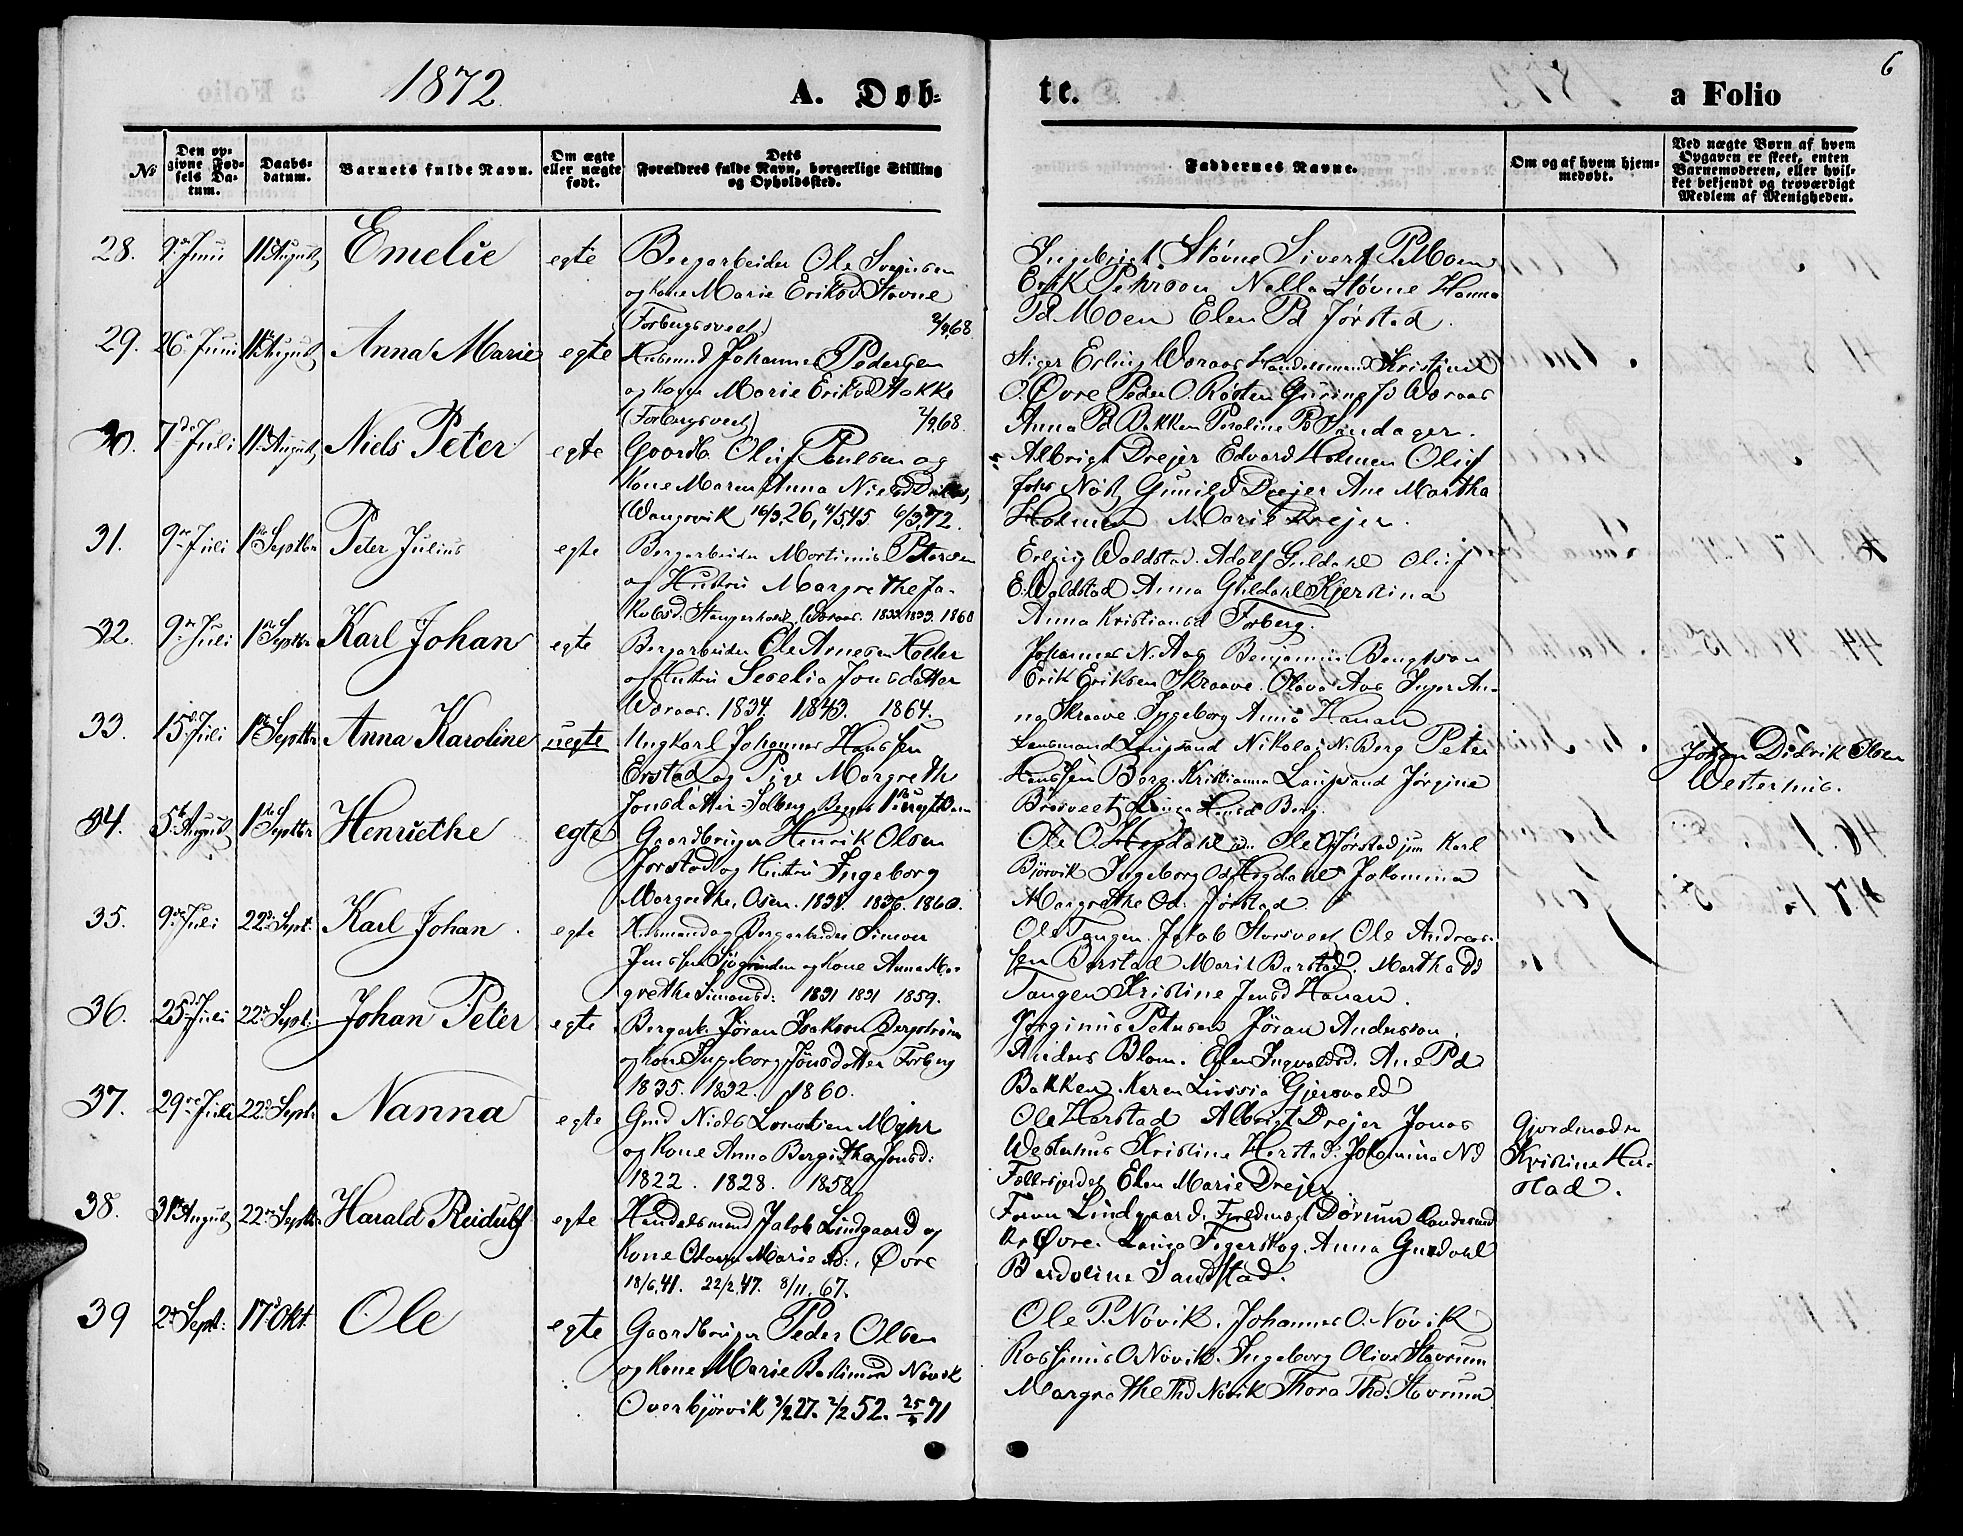 1872
A. Døb-
te.
a Folio
6
No
Den op-
givne Fød-
sels Da-
tum.
Daabs-
datum.
Barnets fulde Navn.
Om ægte
eller uægte
født.
Dets
Forældres fulde Navn, borgerlige Stilling
og Opholdssted.
Faddernes Navne.
Om og af hvem hjem-
medøbt.
Ved uægte Børn af hvem
Opgaven er skeet, enten
Barnemoderen, eller hvil-
ket bekjendt og troværdigt
Medlem af Menigheden.
28. 9de Juni 11te August Emelie egte
Bergarbeider Ole Svensen
og Kone Marie Eriksd Stovne
(Forbergsveet)
Ingebrigt Støvne Sivert P. Moen
Erik Pehrson Nella Støvne Hanna
Pd Moen Elen Pd Jørstad.
29. 26de Juni 11te August Anna Marie egte
Husmand Johannes Pedersen
og Kone Marie Eriksd Stokke
(Forbergsveet) 2/9 68.
Stiger Erling Woraas Handelsmand Kristine
O. Øvre Peder O. Røsten Woraas
Anna Pd Bakken Paroline Pd Sandager.
30. 7de Juli 11te August Niels Peter egte
Gaardb. Oluf Paulsen og
Kone Maren Anna Nielsd
Wangsvik 16/3 26, 4/5 45 6/3 72.
Albrigt Drejer Edvard Holmen Oluf
Johs Nøst Gunild Drejer Ane Martha
Holmen Marie Drejer.
31. 9de Juli 1ste Septbr Peter Julius egte
Bergarbeider Mortinus Petersen
og Hustru Margrethe Ja-
kobsd. Woraas. 1833. 1833. 1860
Erling Woldstad. Adolf Guldahl Oluf
E. Woldstad Anna Guldahl Kjerstina
Anna Kristiansd Forberg.
32. 9de Juli 1ste Septbr Karl Johan egte
Bergarbeider Ole Arnesen Holter
og Hustru Seselia Jonsdatter
Woraas. 1834. 1843. 1864.
Johannes N. Aas Benjamin Bengtson
Erik Eriksen Skraave. Olava Aas Inger An-
na Skraave Ingeborg Anna Hanan
33. 15de Juli 1ste Septbr Anna Karoline uegte
Ungkarl Johannes Hanssen
Erstad og Pige Margreth
Jonsdatter Solberg Begges 1ste uegte Barn
Lensmand Laugsand Nikolaj N. Berg Peter
Hanssen Berg. Kristianna Laugsand Jørgina
Bresveet Hansd Berg.
Johan Didrik Olsen
Westerhus.
34. 5te August 1ste Septbr Henriethe egte
Gaardbruger Henrik Olsen
Jørstad og Hustru Ingeborg
Margrethe. Osen. 1838. 1836. 1860.
Ole O. Hegdahl. Ole O Jørstad jun Karl
Bjørvik Ingeborg Od Hegdahl Jokomina
Margrethe Od. Jørstad.
35. 9de Juli 22de Sept. Karl Johan egte
Husmand og Bergarbeider Simon
Jenssen Sjøgrinden og Kone Anna Mar-
grethe Simonsd: 1831 1831 1859.
Ole Tangen Jakob Storsveet Ole Andreas-
sen Barstad Marit Barstad. Martha Od
Tangen Kristine Jensd Hanan.
36. 25de Juli 22de Sept: Johan Peter egte
Bergarb. Jøran Isakson Bergstrøm
og Kone Ingeborg Jønsdatter Forberg
1835. 1832. 1860.
Jørginus Petersen Jøran Andersson
Anders Blom. Elen Ingvaldsd. Ane Pd
Bakken Karen Lussia Gjersvold
37. 29de Juli 22de Septr Nanna egte
Gmd Niels Mohr
og Kone Anna Bergitha Jonsd:
1822. 1828. 1858
Ole Harstad Albrigt Drejer Jonas
Westerhus Kristine Harstad: Jokomina Nd
Elen Marie Drejer
Gjordmoder
Kristine Har-
stad.
38. 31te August 22de Septbr Harald Reidulf egte
Handelsmand Jakob Lindgaard og
Kone Olava Marie Ad:, Øvre
18/6 41. 22/2 47. 8/11. 67.
Lindgaard. Dørum
Kr Øvre. Laura Fegerskog. Anna Guldahl
Berdoline Sandstad.
39 2de Sept: 17de Okt. Ole egte
Gaardbruger Peder Olsen
og Kone Marie Novik
Overbjørvik 3/2 27. 2/2 52. 71
Ole P. Novik, Johannes O. Novik
Rassmus O Novik. Ingeborg Olive Stavrum
Margrethe Thd Novik Thora Thd. Stavrum